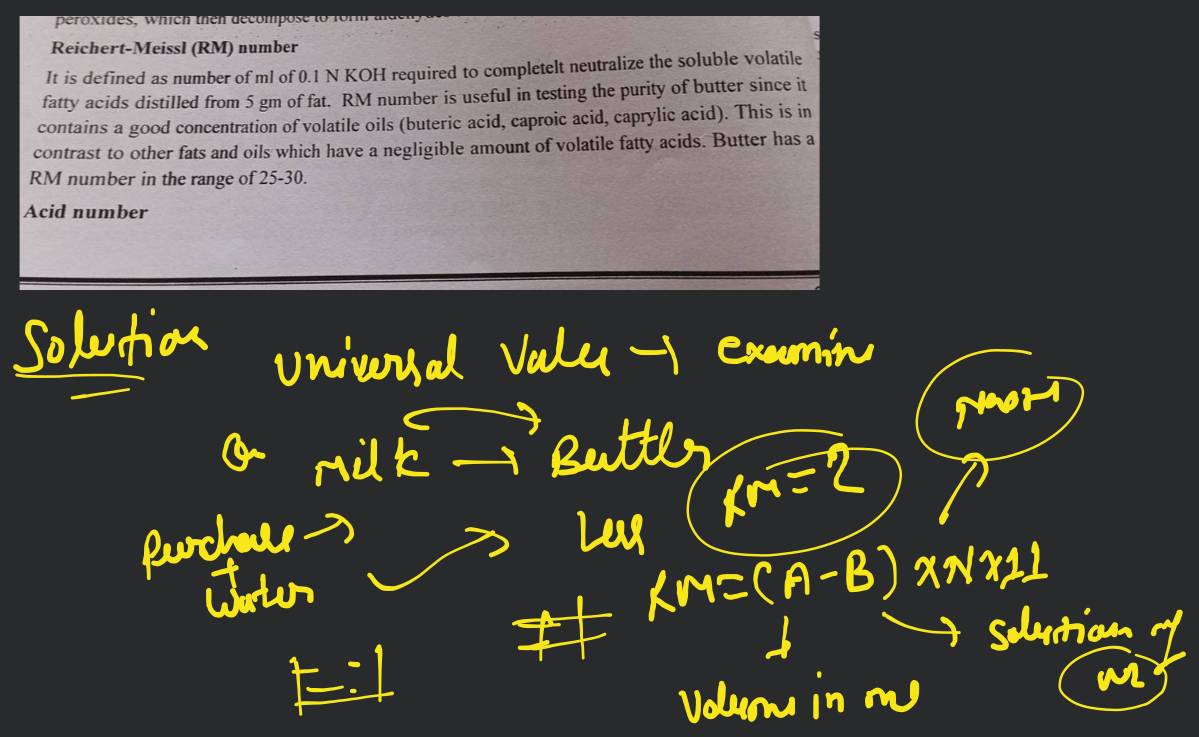 peroxides, which then decompose to form
Reichert-Meissl (RM) number
It is defined as number of ml of 0.1 N KOH required to completelt neutralize the soluble volatile
fatty acids distilled from 5 gm of fat. RM number is useful in testing the purity of butter since it
contains a good concentration of volatile oils (buteric acid, caproic acid, caprylic acid). This is in
contrast to other fats and oils which have a negligible amount of volatile fatty acids. Butter has a
RM number in the range of 25-30.
Acid number
Solution
Universal Value → examine
Milk → Butter
RM = ?
Purchase →
+
Water
Less
RM = (A - B) x N x 11
NaOH
Volume in ml